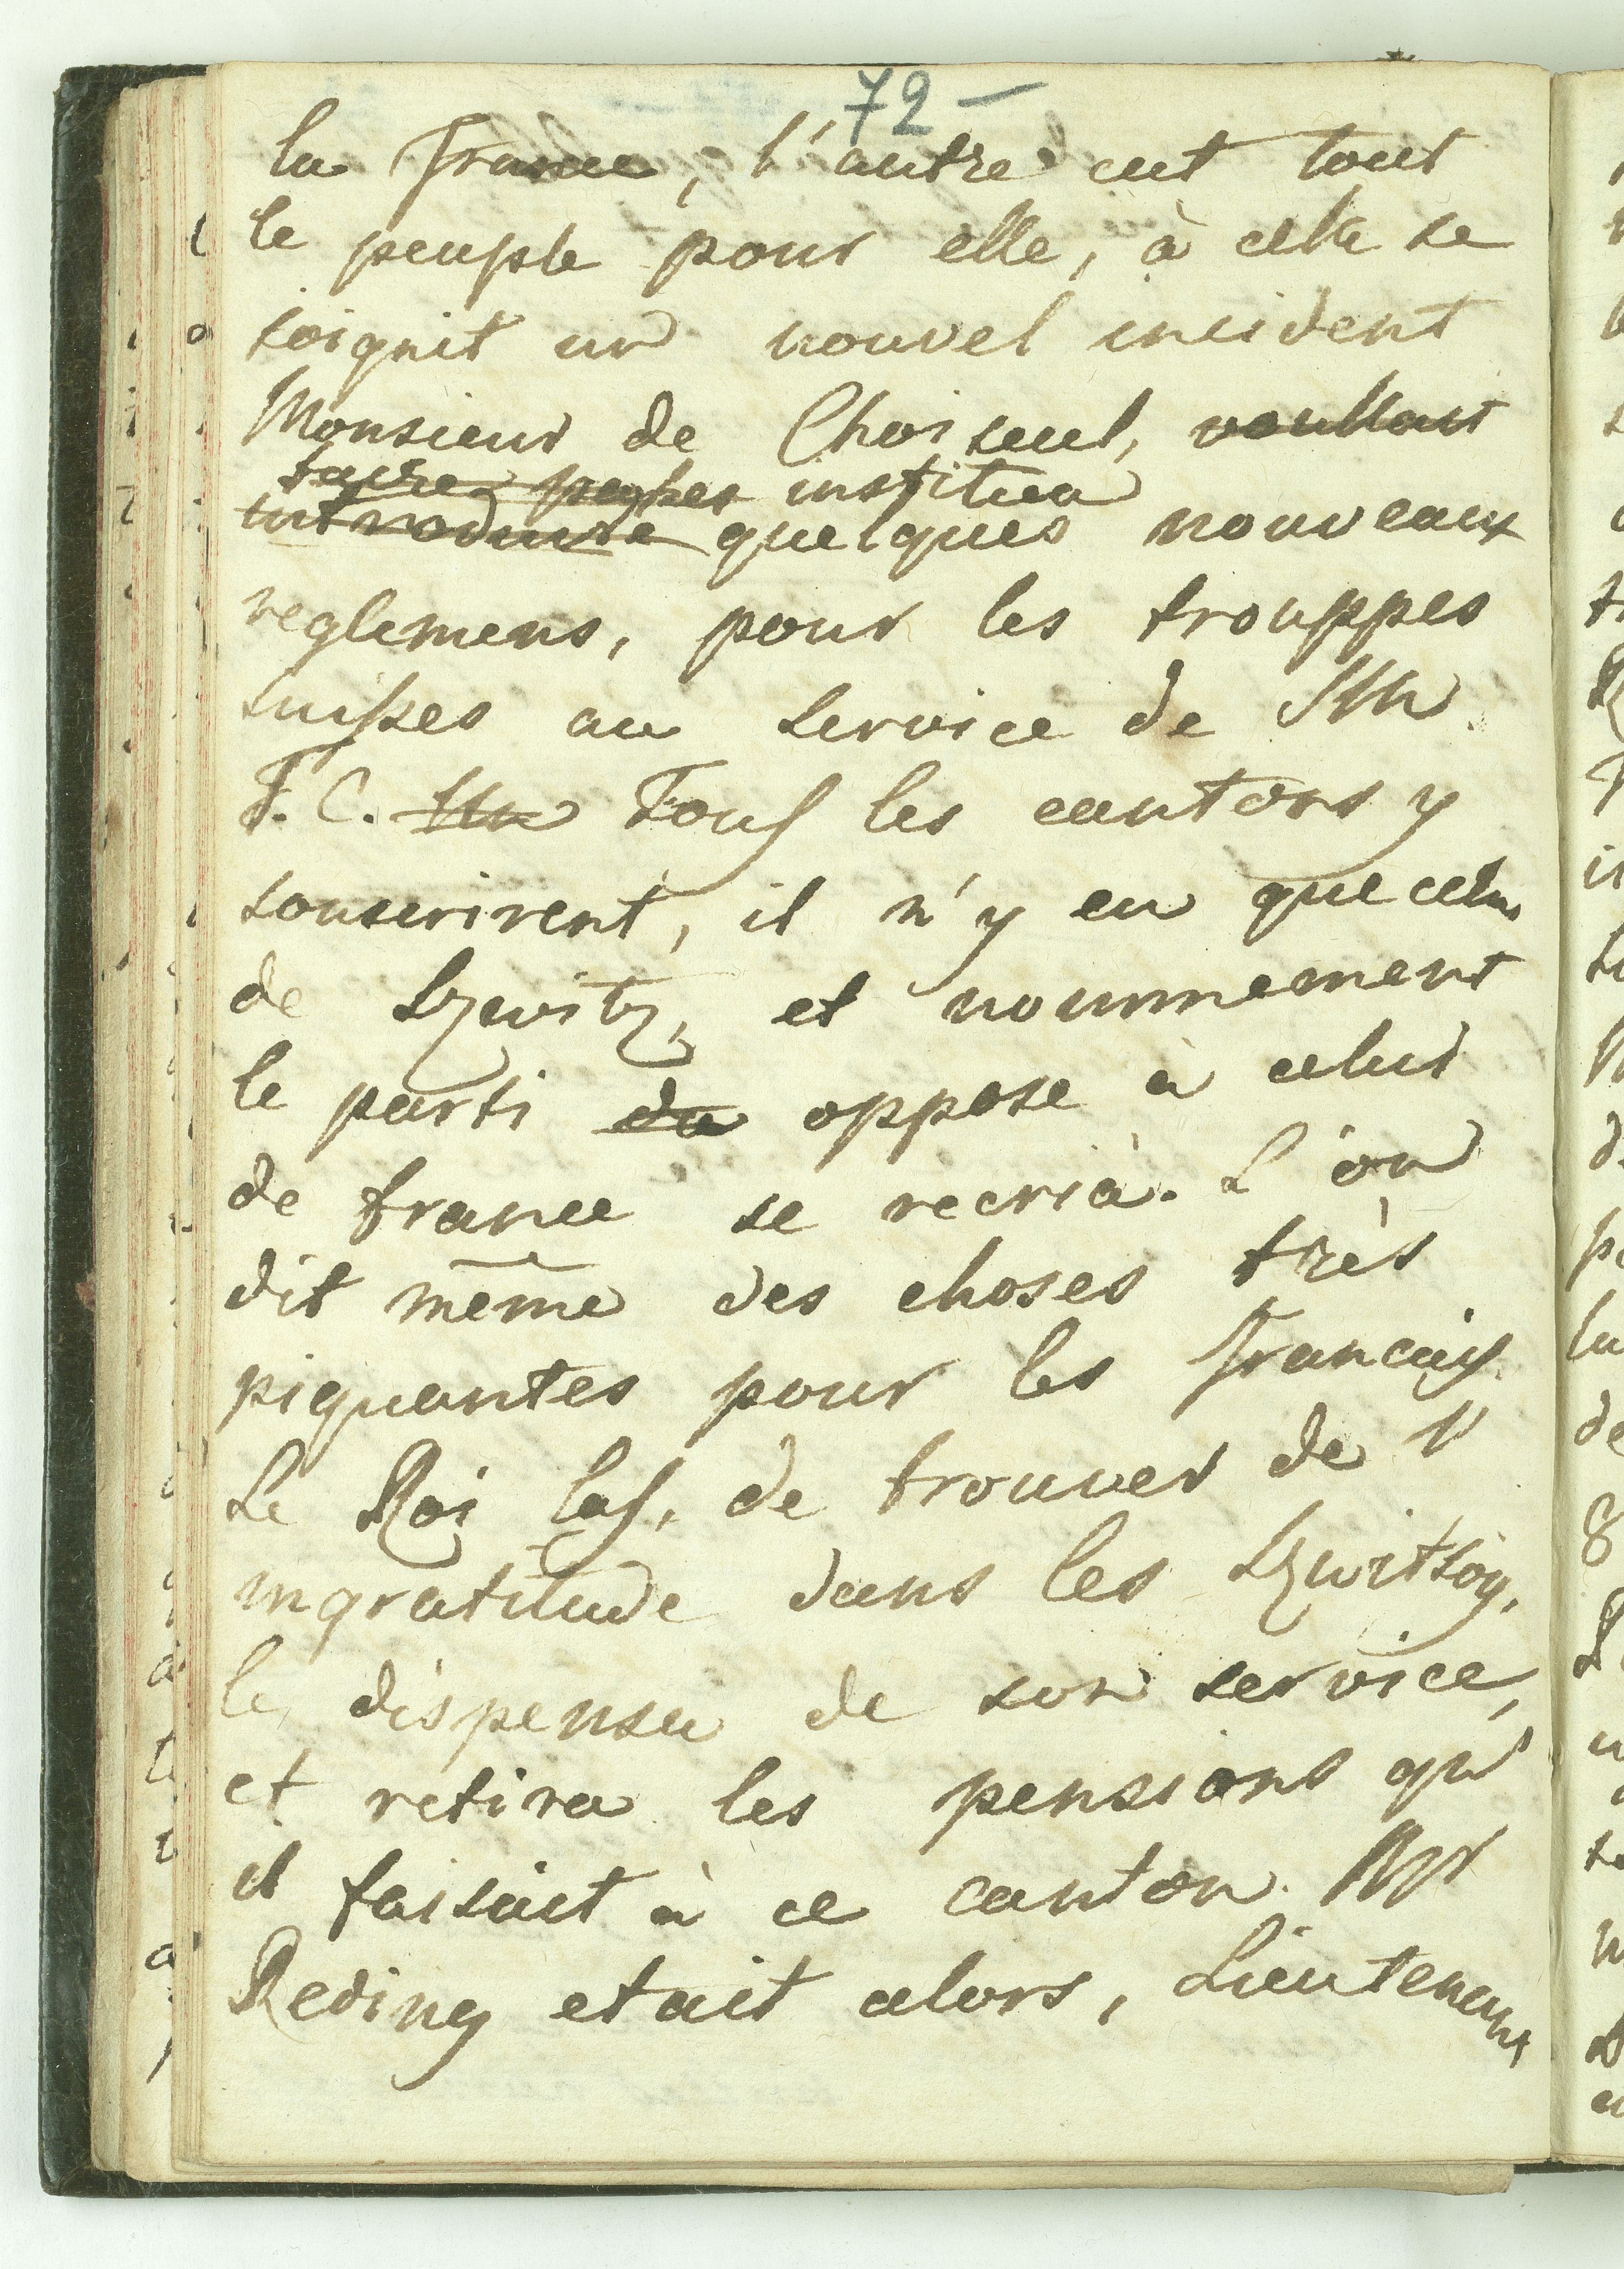 72 -
la France, l'autre eut tout
le peuple pour elle, à cella se
joignit un nouvel incident
Monsieur de Choiseul, voullant
faire passer institua
introduire quelques nouveaux
reglemens, pour les trouppes
suisses au service de SM
T. C. Un Tous les cantons y
souscrirent, il n'y eu que celui
de Szwitz, et nommement
le parti du oppose à celui
de france se recria. L'on
dit même des choses très
piquantes pour les Francais
Le Roi las, de trouver de l'
ingratitude dans les Szwitsois,
le dispensa de son service,
et retira les pensions qu'
il faisait à ce canton. Mr
Reding etait alors, Lieutenant